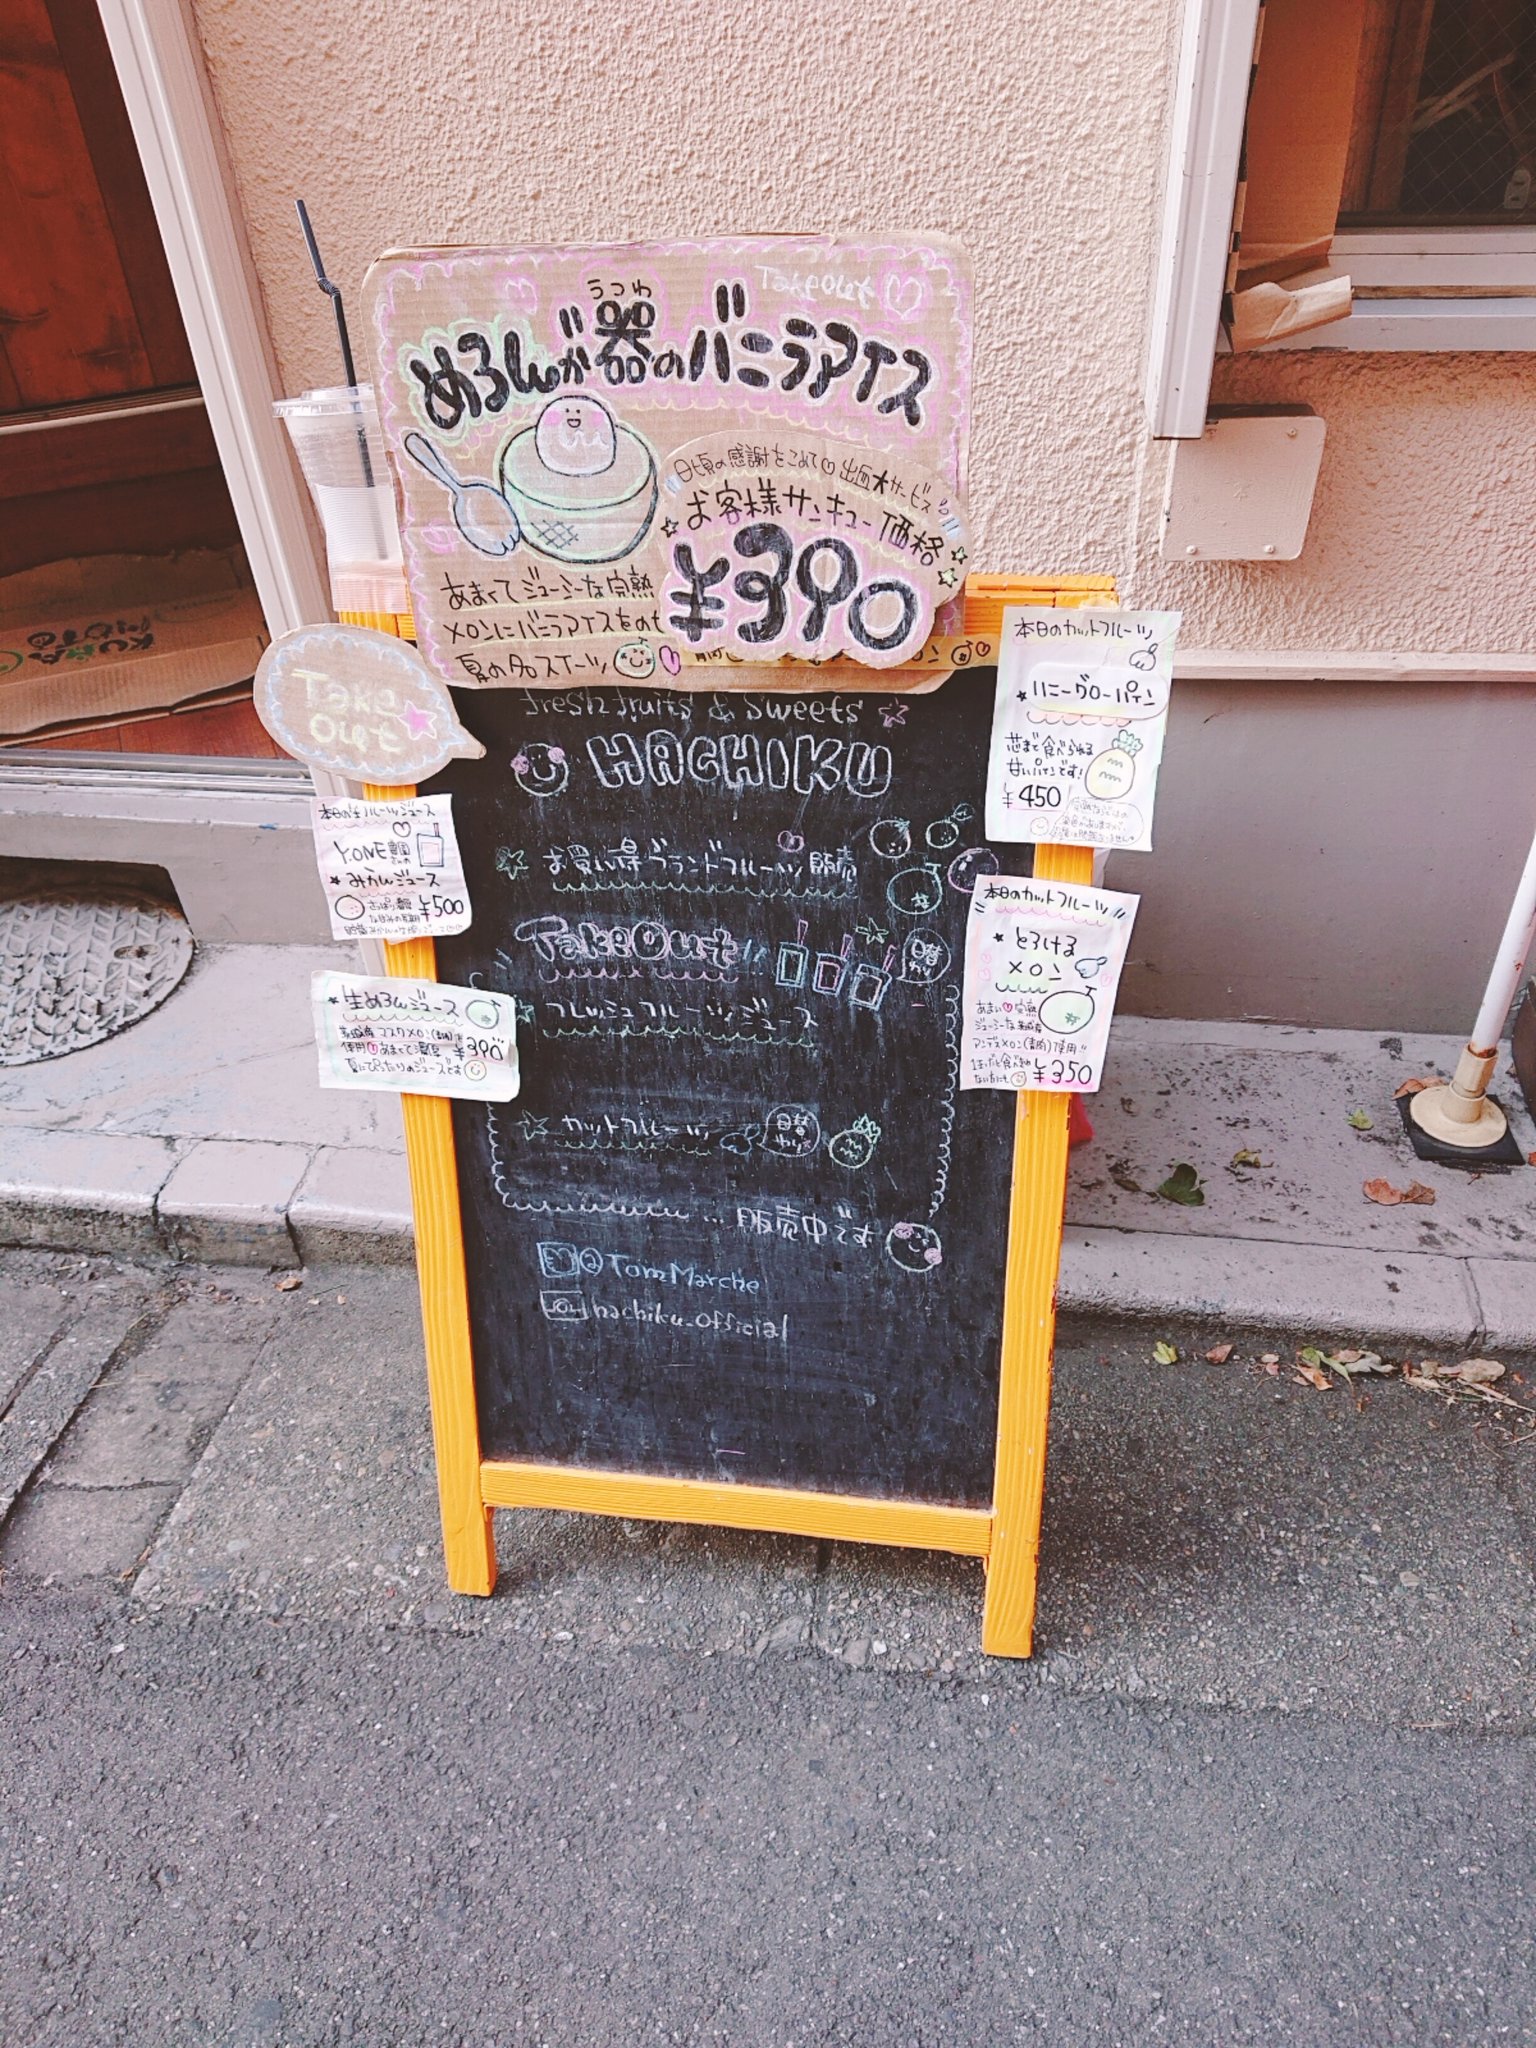 Takeout
うつわ
めろんが器のバニラアイス
日頃の感謝をこめて♡出血大サービス
お客様サンキュー価格
¥390
あまくてジューシーな完熟
メロンにバニラアイスをのせ
夏の名スイーツ
Take
out
fresh fruits & Sweets
HACHIKU
お買い得ブランドフルーツ販売
TakeOut
日替わり
フレッシュフルーツジュース
カットフルーツ
日替わり
... 販売中です
@TomMarche
hachiku_official
本日の生フルーツジュース
Y.ONE農園さんの
★みかんジュース
¥500
★生めろんジュース
茨城産マスクメロン(青肉)を
使用♡あまくて濃厚
¥390
夏にぴったりのジュースです
本日のカットフルーツ
★ハニーグローパイン
芯まで食べられる
甘いパインです!
¥450
本日のカットフルーツ
★とろける
メロン
あまい♡完熟
ジューシーな茨城産
アンデスメロン(青肉)使用!!
¥350